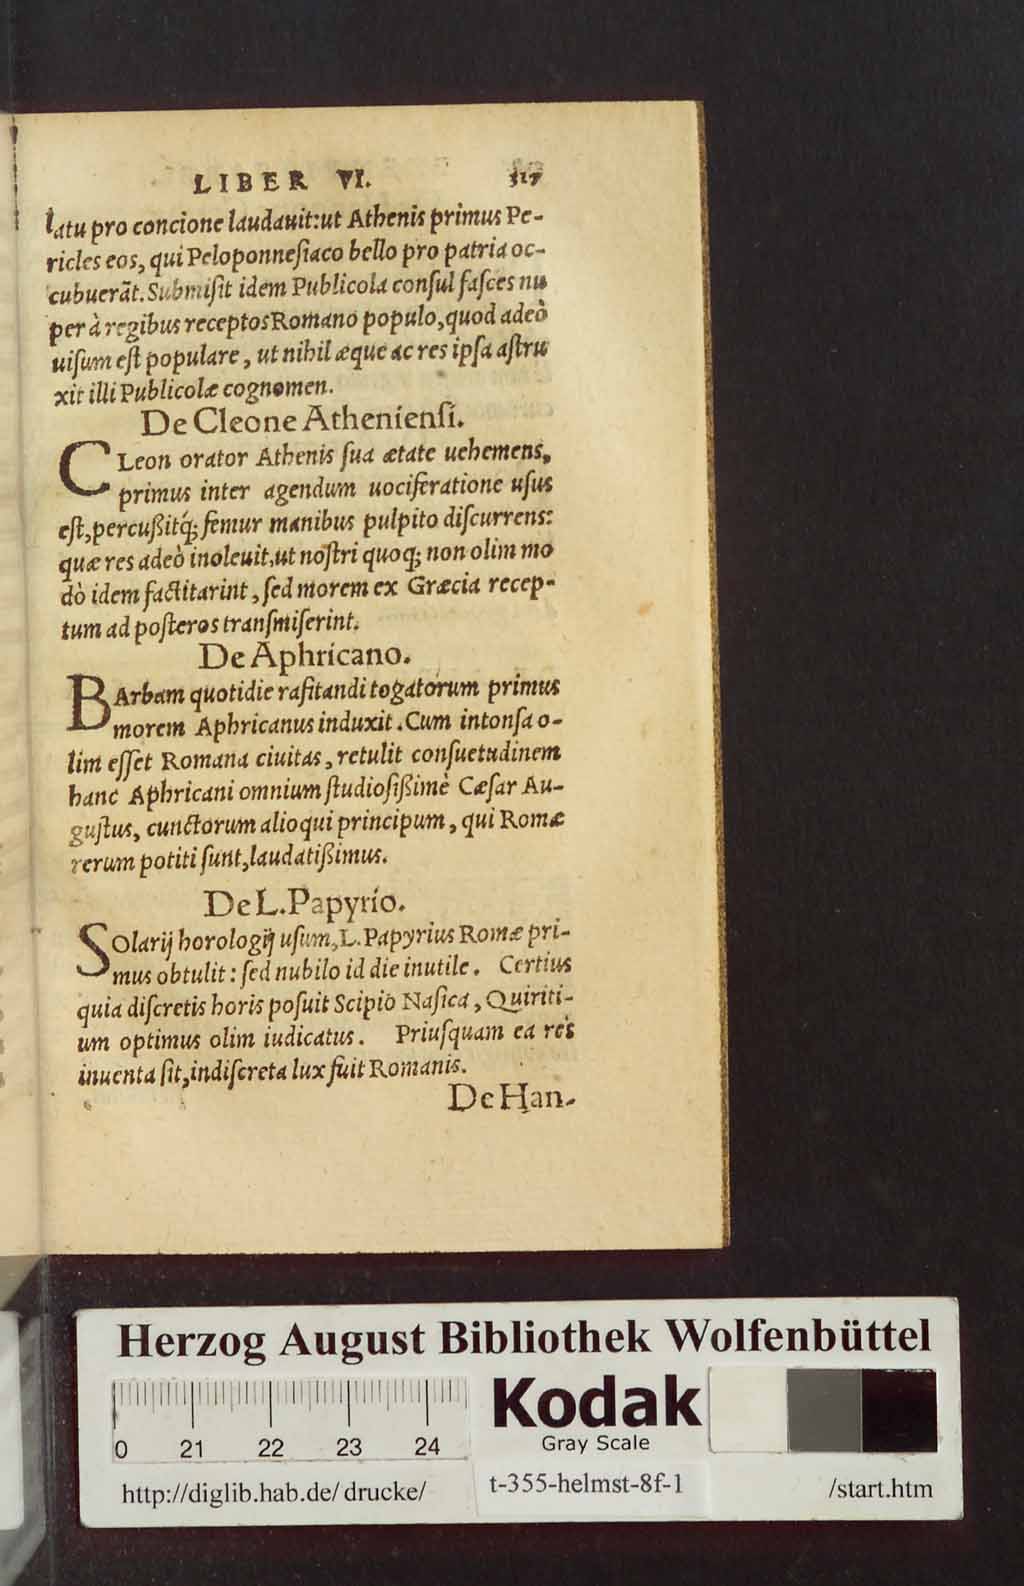 LIBER VI. 317
latu pro concione laudauit:ut Athenis primus Pe-
ricles eos, qui Peloponneſiaco bello pro patria oc-
cubuerāt. Submiſit idem Publicola conſul faſces nu
per à regibus receptos Romano populo, quod adeò
uiſum eſt populare, ut nihil æque ac res ipſa aſtru
xit illi Publicolæ cognomen.
De Cleone Athenienſi.
CLeon orator Athenis ſua ætate uehemens,
primus inter agendum uociferatione uſus
eſt, percußitq́; femur manibus pulpito diſcurrens:
quæ res adeò inoleuit, ut noſtri quoq; non olim mo
dò idem factitarint, ſed morem ex Græcia recep-
tum ad poſteros tranſmiſerint.
De Aphricano.
BArbam quotidie raſitandi togatorum primus
morem Aphricanus induxit. Cum intonſa o-
lim eſſet Romana ciuitas, retulit conſuetudinem
hanc Aphricani omnium ſtudioſißimè Cæſar Au-
guſtus, cunctorum alioqui principum, qui Romæ
rerum potiti ſunt, laudatißimus.
De L. Papyrio.
SOlarij horologij uſum, L. Papyrius Romæ pri-
mus obtulit: ſed nubilo id die inutile. Certius
quia diſcretis horis poſuit Scipio Naſica, Quiriti-
um optimus olim iudicatus. Priuſquam ea res
inuenta ſit, indiſcreta lux fuit Romanis.
De Han-
Herzog August Bibliothek Wolfenbüttel
0 21 22 23 24
Kodak
Gray Scale
http://diglib.hab.de/ drucke/ t-355-helmst-8f-1 /start.htm